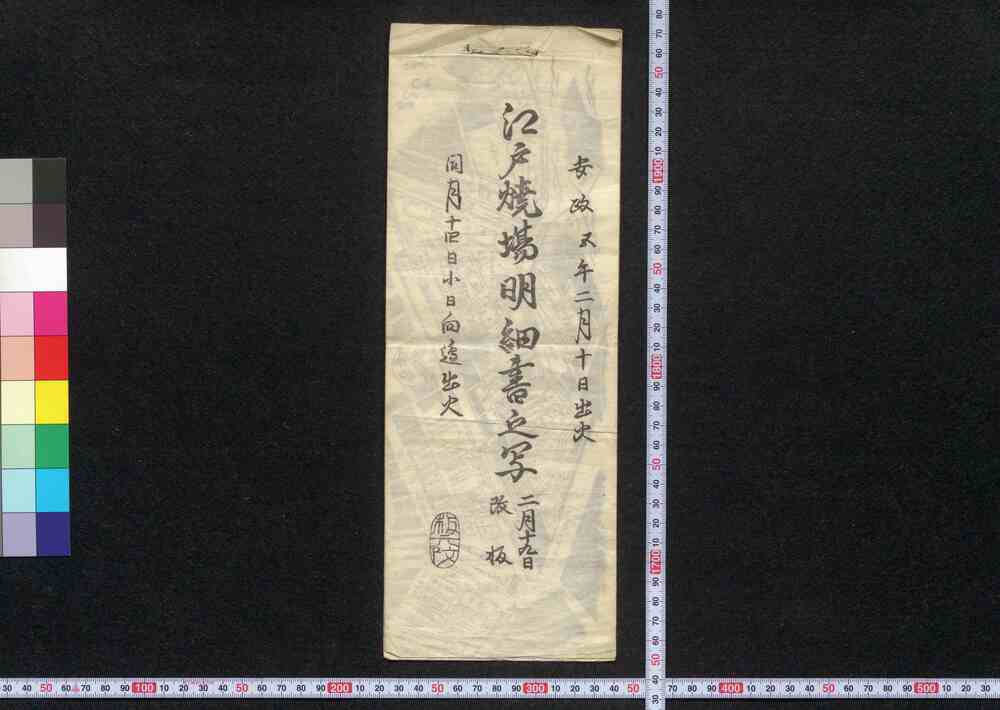 安政五午年二月十日出火
江戸焼場明細書之写
二月十九日
改板
同月十四日小日向邉出火
板六文